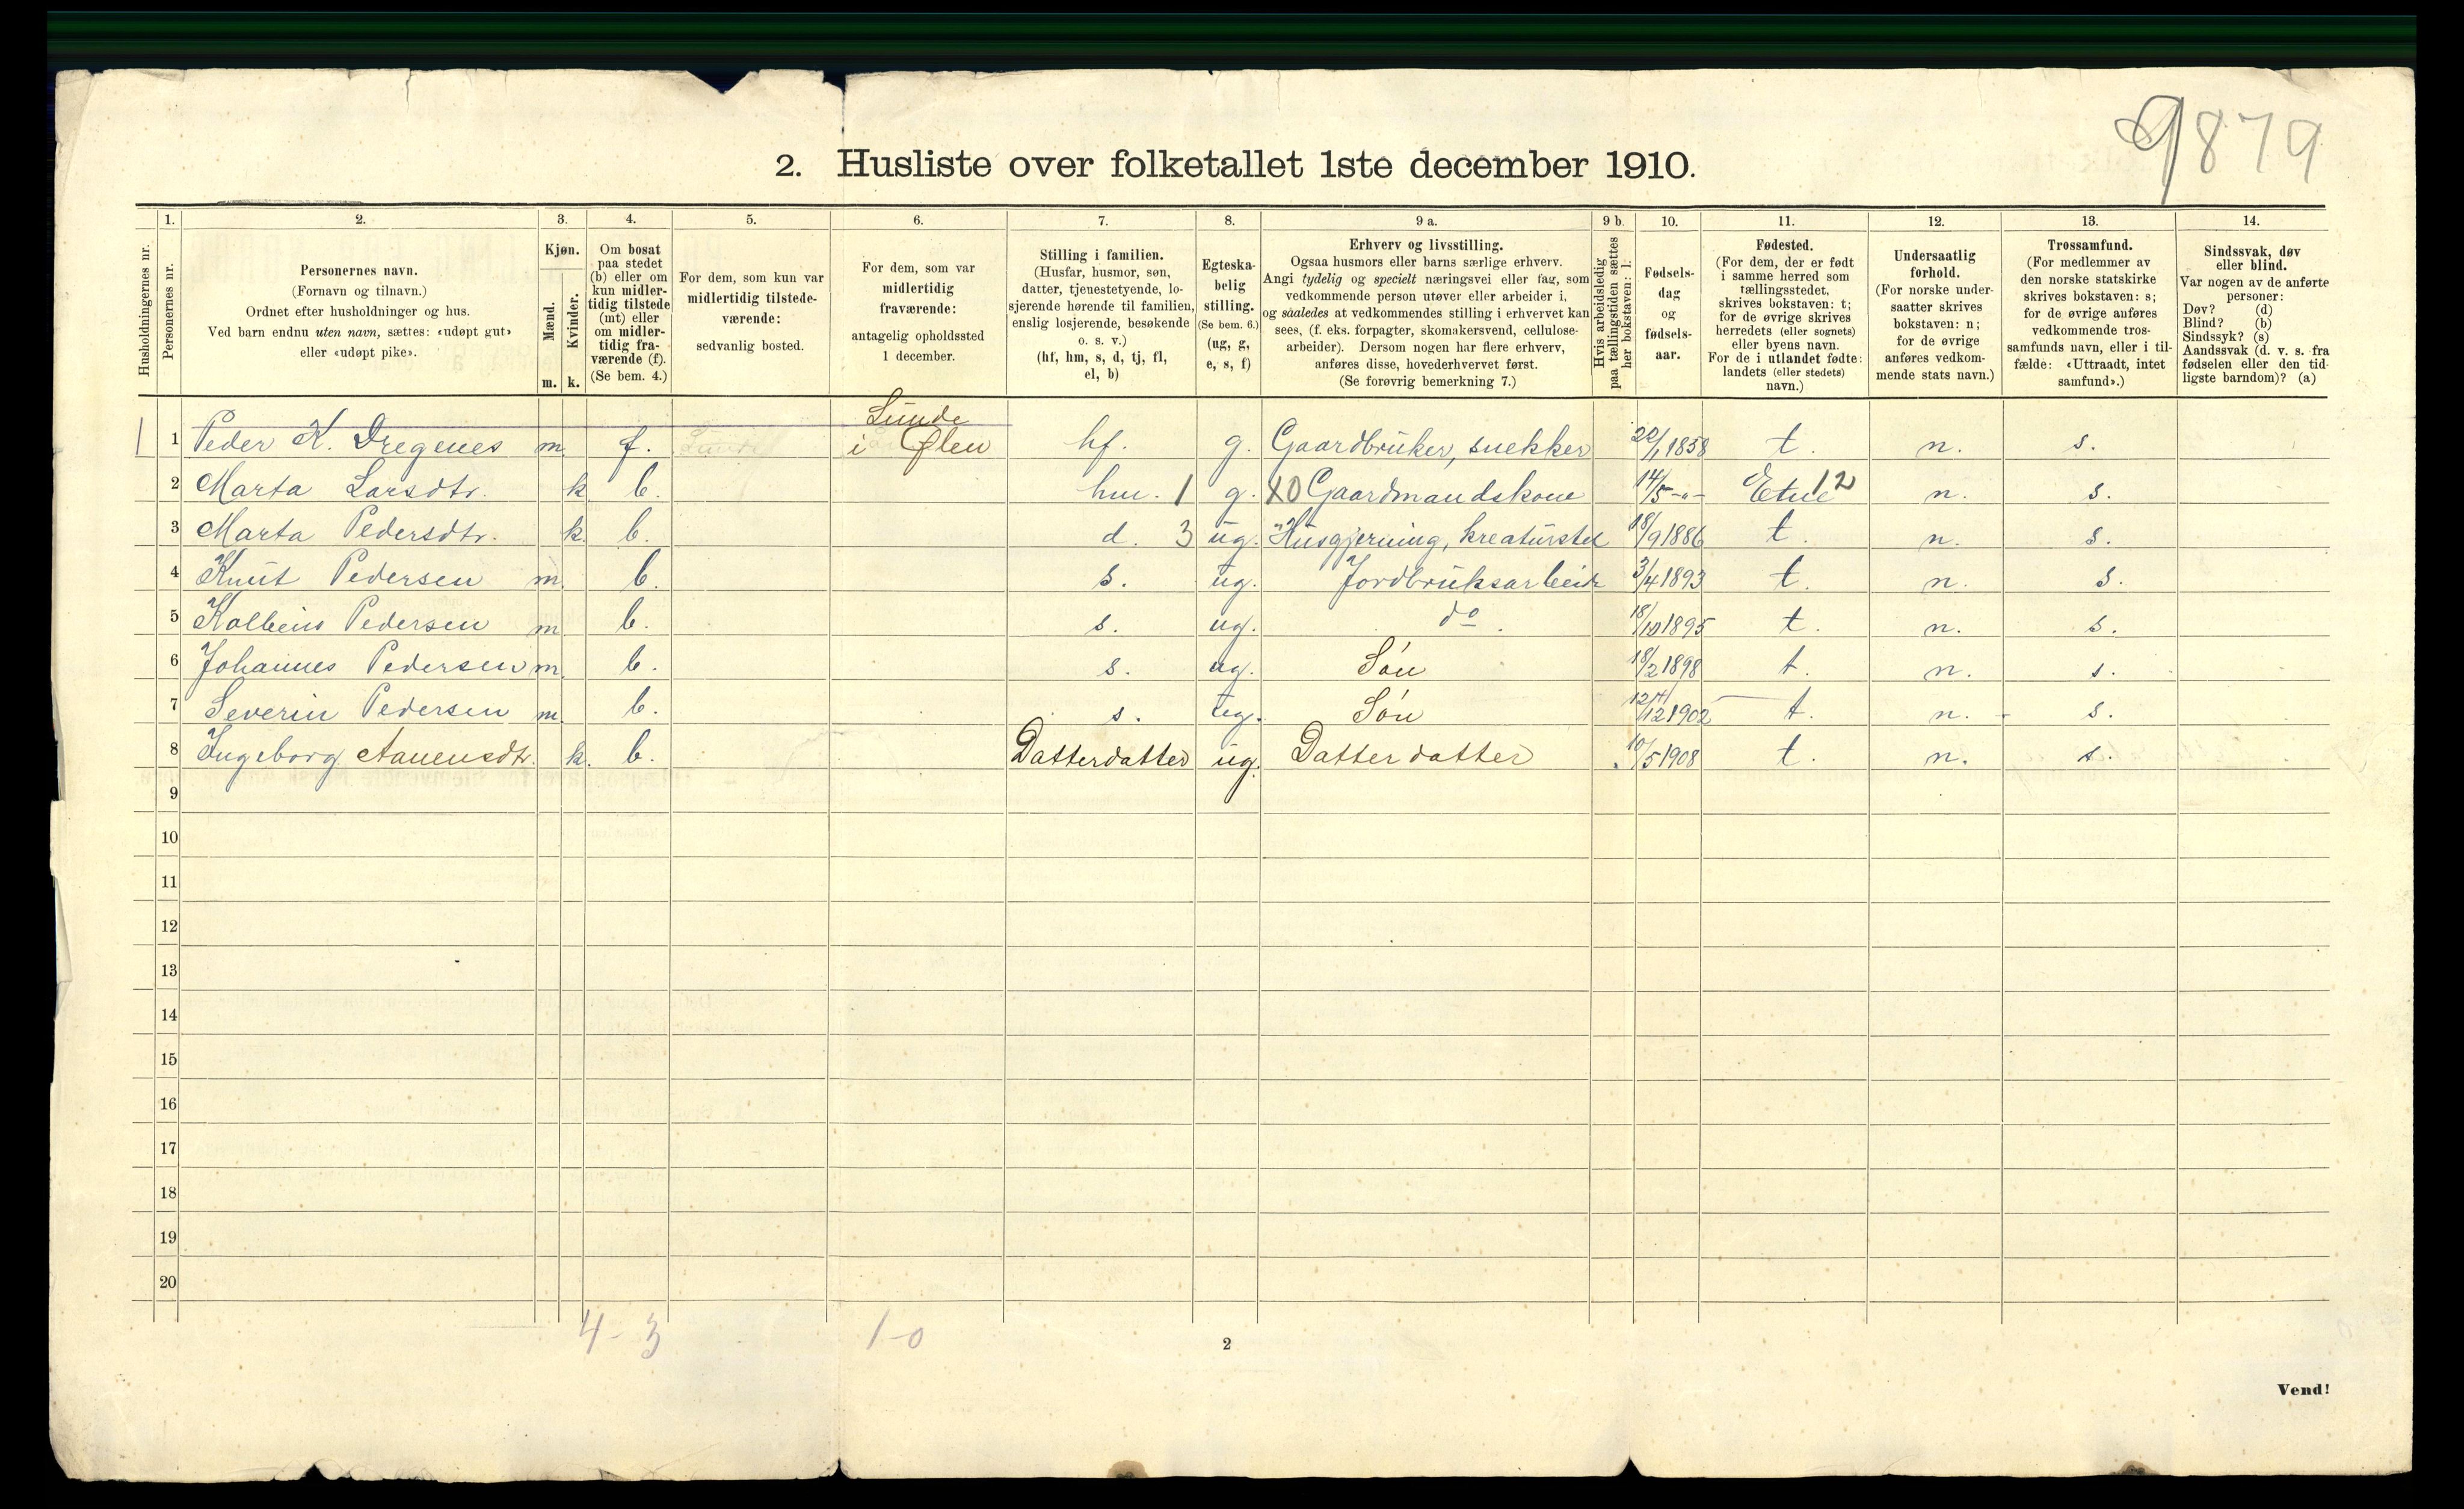 9879
2. Husliste over folketallet 1ste december 1910.
Husholdningernes nr.
1. Personernes nr.
2. Personernes navn.
(Fornavn og tilnavn.)
Ordnet efter husholdninger og hus.
Ved barn endnu uten navn, sættes: «udøpt gut»
eller «udøpt pike».
3. Kjøn.
Mænd. m.
Kvinder. k.
4. Om bosat
paa stedet
(b) eller om
kun midler-
tidig tilstede
(mt) eller
om midler-
tidig fra-
værende (f).
(Se bem. 4.)
5. For dem, som kun var
midlertidig tilstede-
værende:
sedvanlig bosted.
6. For dem, som var
midlertidig
fraværende:
antagelig opholdssted
1 december.
7. Stilling i familien.
(Husfar, husmor, søn,
datter, tjenestetyende, lo-
sjerende hørende til familien,
enslig losjerende, besøkende
o. s. v.)
(hf, hm, s, d, tj, fl,
el, b)
8. Egteska-
belig
stilling.
(Se bem. 6.)
(ug, g,
e, s, f)
9 a. Erhverv og livsstilling.
Ogsaa husmors eller barns særlige erhverv.
Angi tydelig og specielt næringsvei eller fag, som
vedkommende person utøver eller arbeider i,
og saaledes at vedkommendes stilling i erhvervet kan
sees, (f. eks. forpagter, skomakersvend, cellulose-
arbeider). Dersom nogen har flere erhverv,
anføres disse, hovederhvervet først.
(Se forøvrig bemerkning 7.)
9 b. Hvis arbeidsledig
paa tællingstiden sættes
her bokstaven: l.
10. Fødsels-
dag
og
fødsels-
aar.
11. Fødested.
(For dem, der er født
i samme herred som
tællingsstedet,
skrives bokstaven: t;
for de øvrige skrives
herredets (eller sognets)
eller byens navn.
For de i utlandet fødte:
landets (eller stedets)
navn.)
12. Undersaatlig
forhold.
(For norske under-
saatter skrives
bokstaven: n;
for de øvrige
anføres vedkom-
mende stats navn.)
13. Trossamfund.
(For medlemmer av
den norske statskirke
skrives bokstaven: s;
for de øvrige anføres
vedkommende tros-
samfunds navn, eller i til-
fælde: «Uttraadt, intet
samfund».)
14. Sindssvak, døv
eller blind.
Var nogen av de anførte
personer:
Døv? (d)
Blind? (b)
Sindssyk? (s)
Aandssvak (d. v. s. fra
fødselen eller den tid-
ligste barndom)? (a)
Lunde
1 1 Peder K. Dregenes m. f. i Ølen hf. g. Gaardbruker, snekker 22/1 1858 t. n. s.
2 Marta Larsdtr. k b. hm. 1 g. X0 Gaardmandskone 14/5 -"- Etne 12 n. s.
3 Marta Pedersdtr. k. b. d. 3 ug. Husgjerning, kreaturstel 18/9 1886 t. n. s.
4 Knut Pedersen m. b. s. ug. Jordbruksarbeide 3/4 1893 t. n. s.
5 Kolbein Pedersen m b. s. ug. do. 18/10 1895 t. n. s.
6 Johannes Pedersen m. b. s. ug. Søn 18/2 1898 t. n. s.
7 Severin Pedersen m. b. s. ug. Søn 12/12 1902 t. n. s.
8 Ingeborg Aanensdtr. k. b. Datterdatter ug. Datterdatter 10/5 1908 t. n. s.
9
10
11
12
13
14
15
16
17
18
19
20
4-3 1-0
2
Vend!